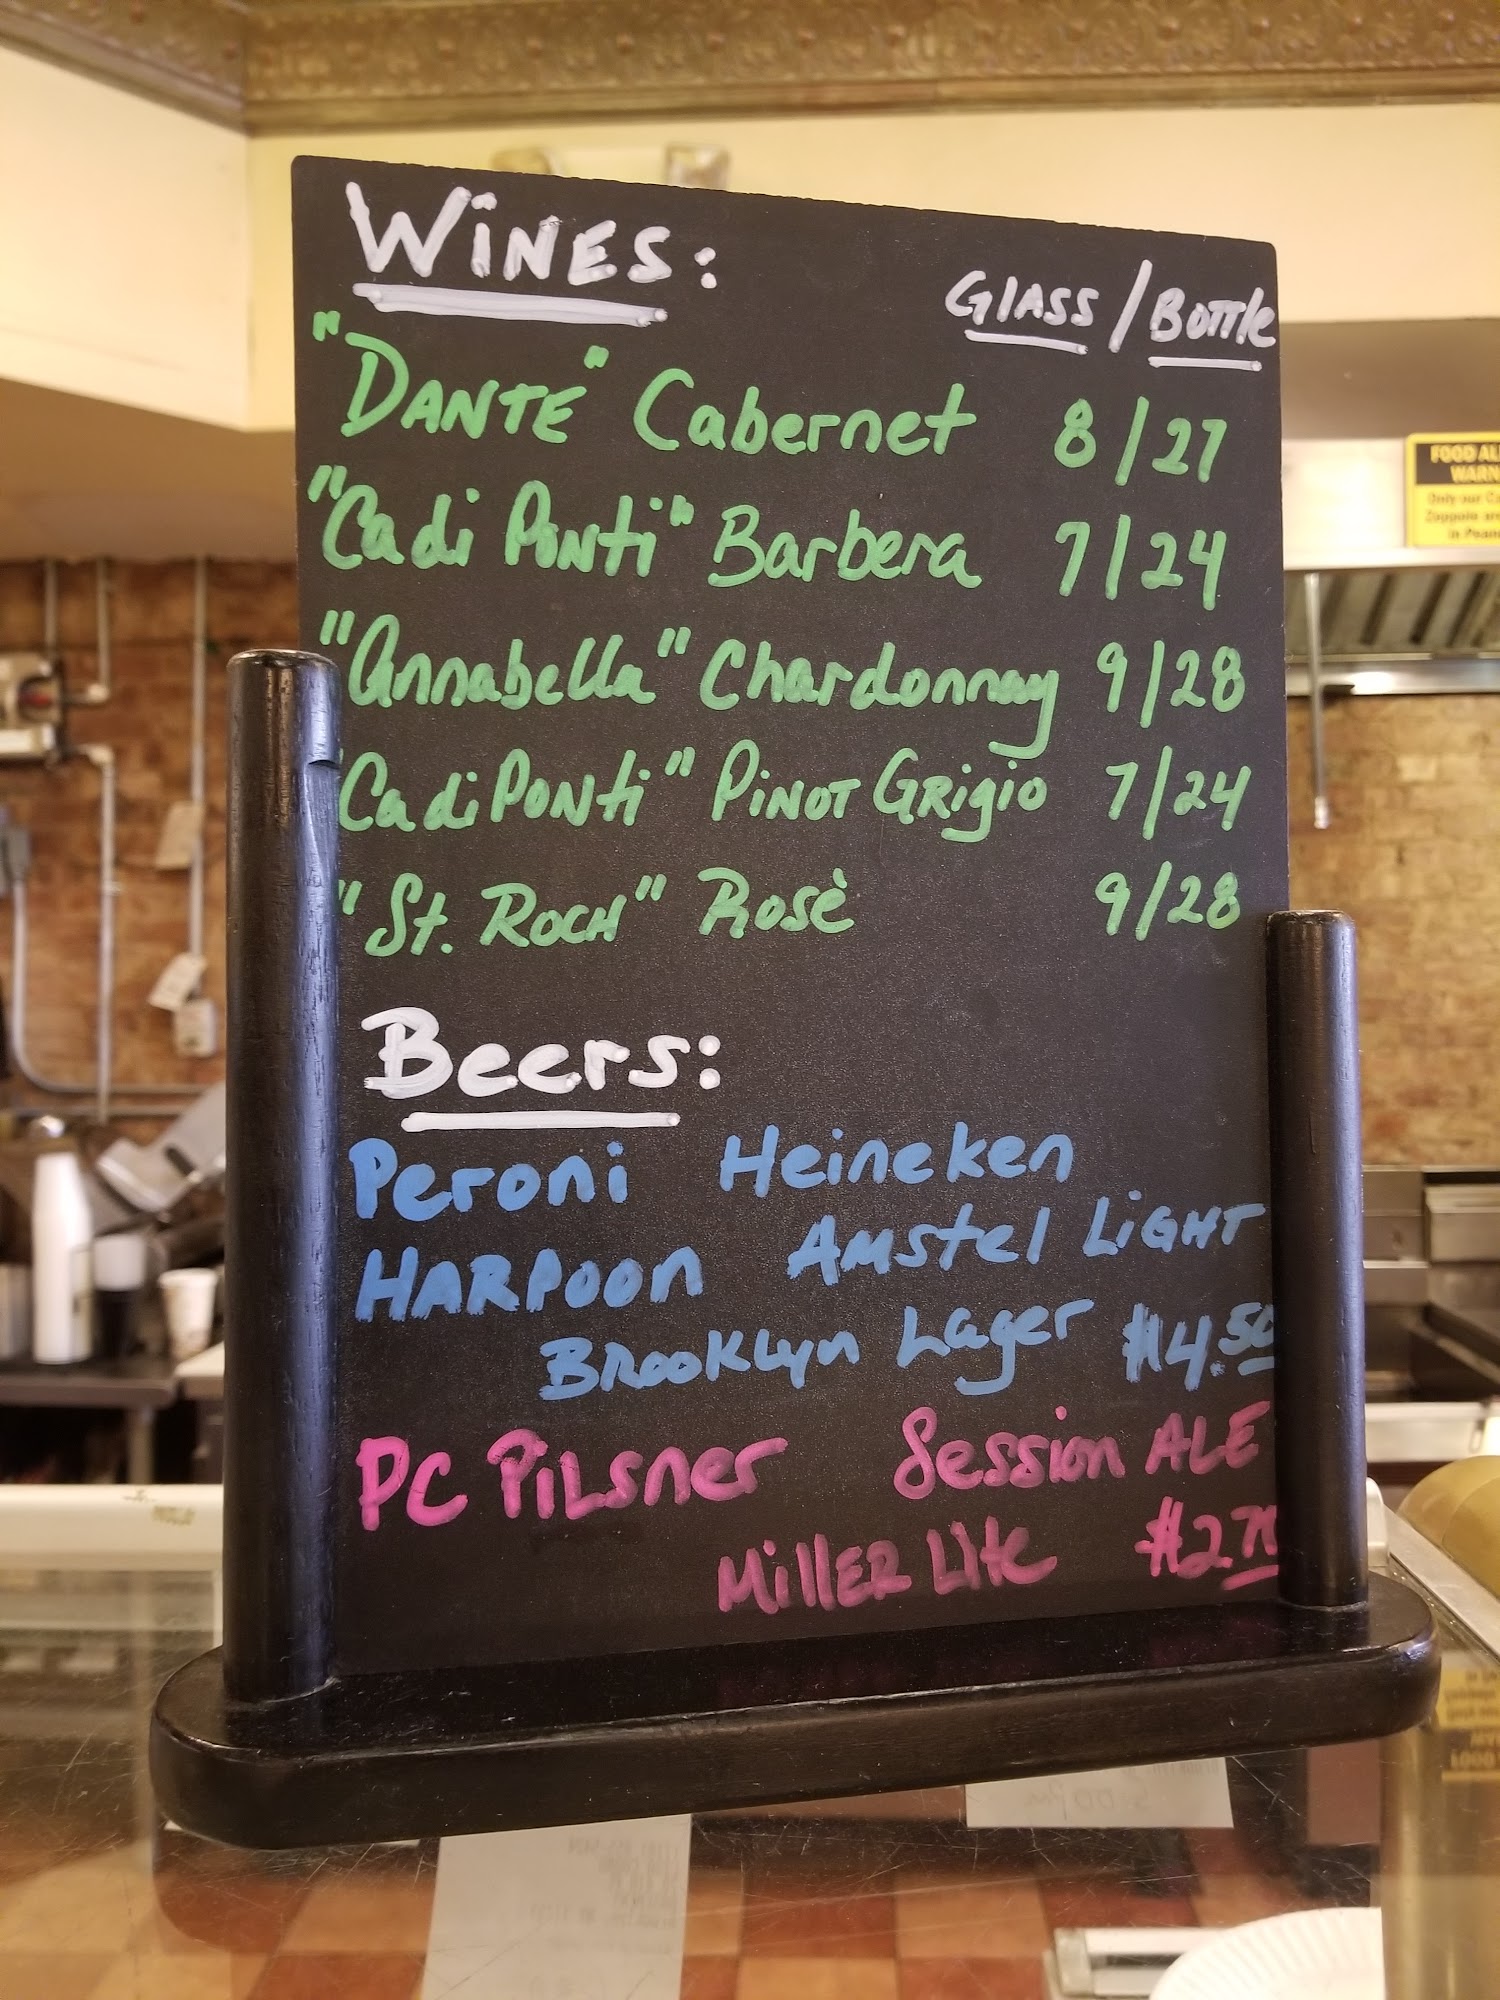 WiNES:
GLASS / BOTTLE
"DANTE" Cabernet 8/27
"Ca di PONTi" Barbera 7/24
"Annabella" Chardonnay 9/28
"Ca di PONTi" PiNOT GRigio 7/24
"St. ROCH" Rosè 9/28
Beers:
Peroni Heineken
HARPOON Amstel LiGHT
BROOKLyn Lager $4.50
PC PiLsner Session ALE
MiLLER Lite
FOOD AL
WARN
Only our Ca
Zeppole are
in Pean